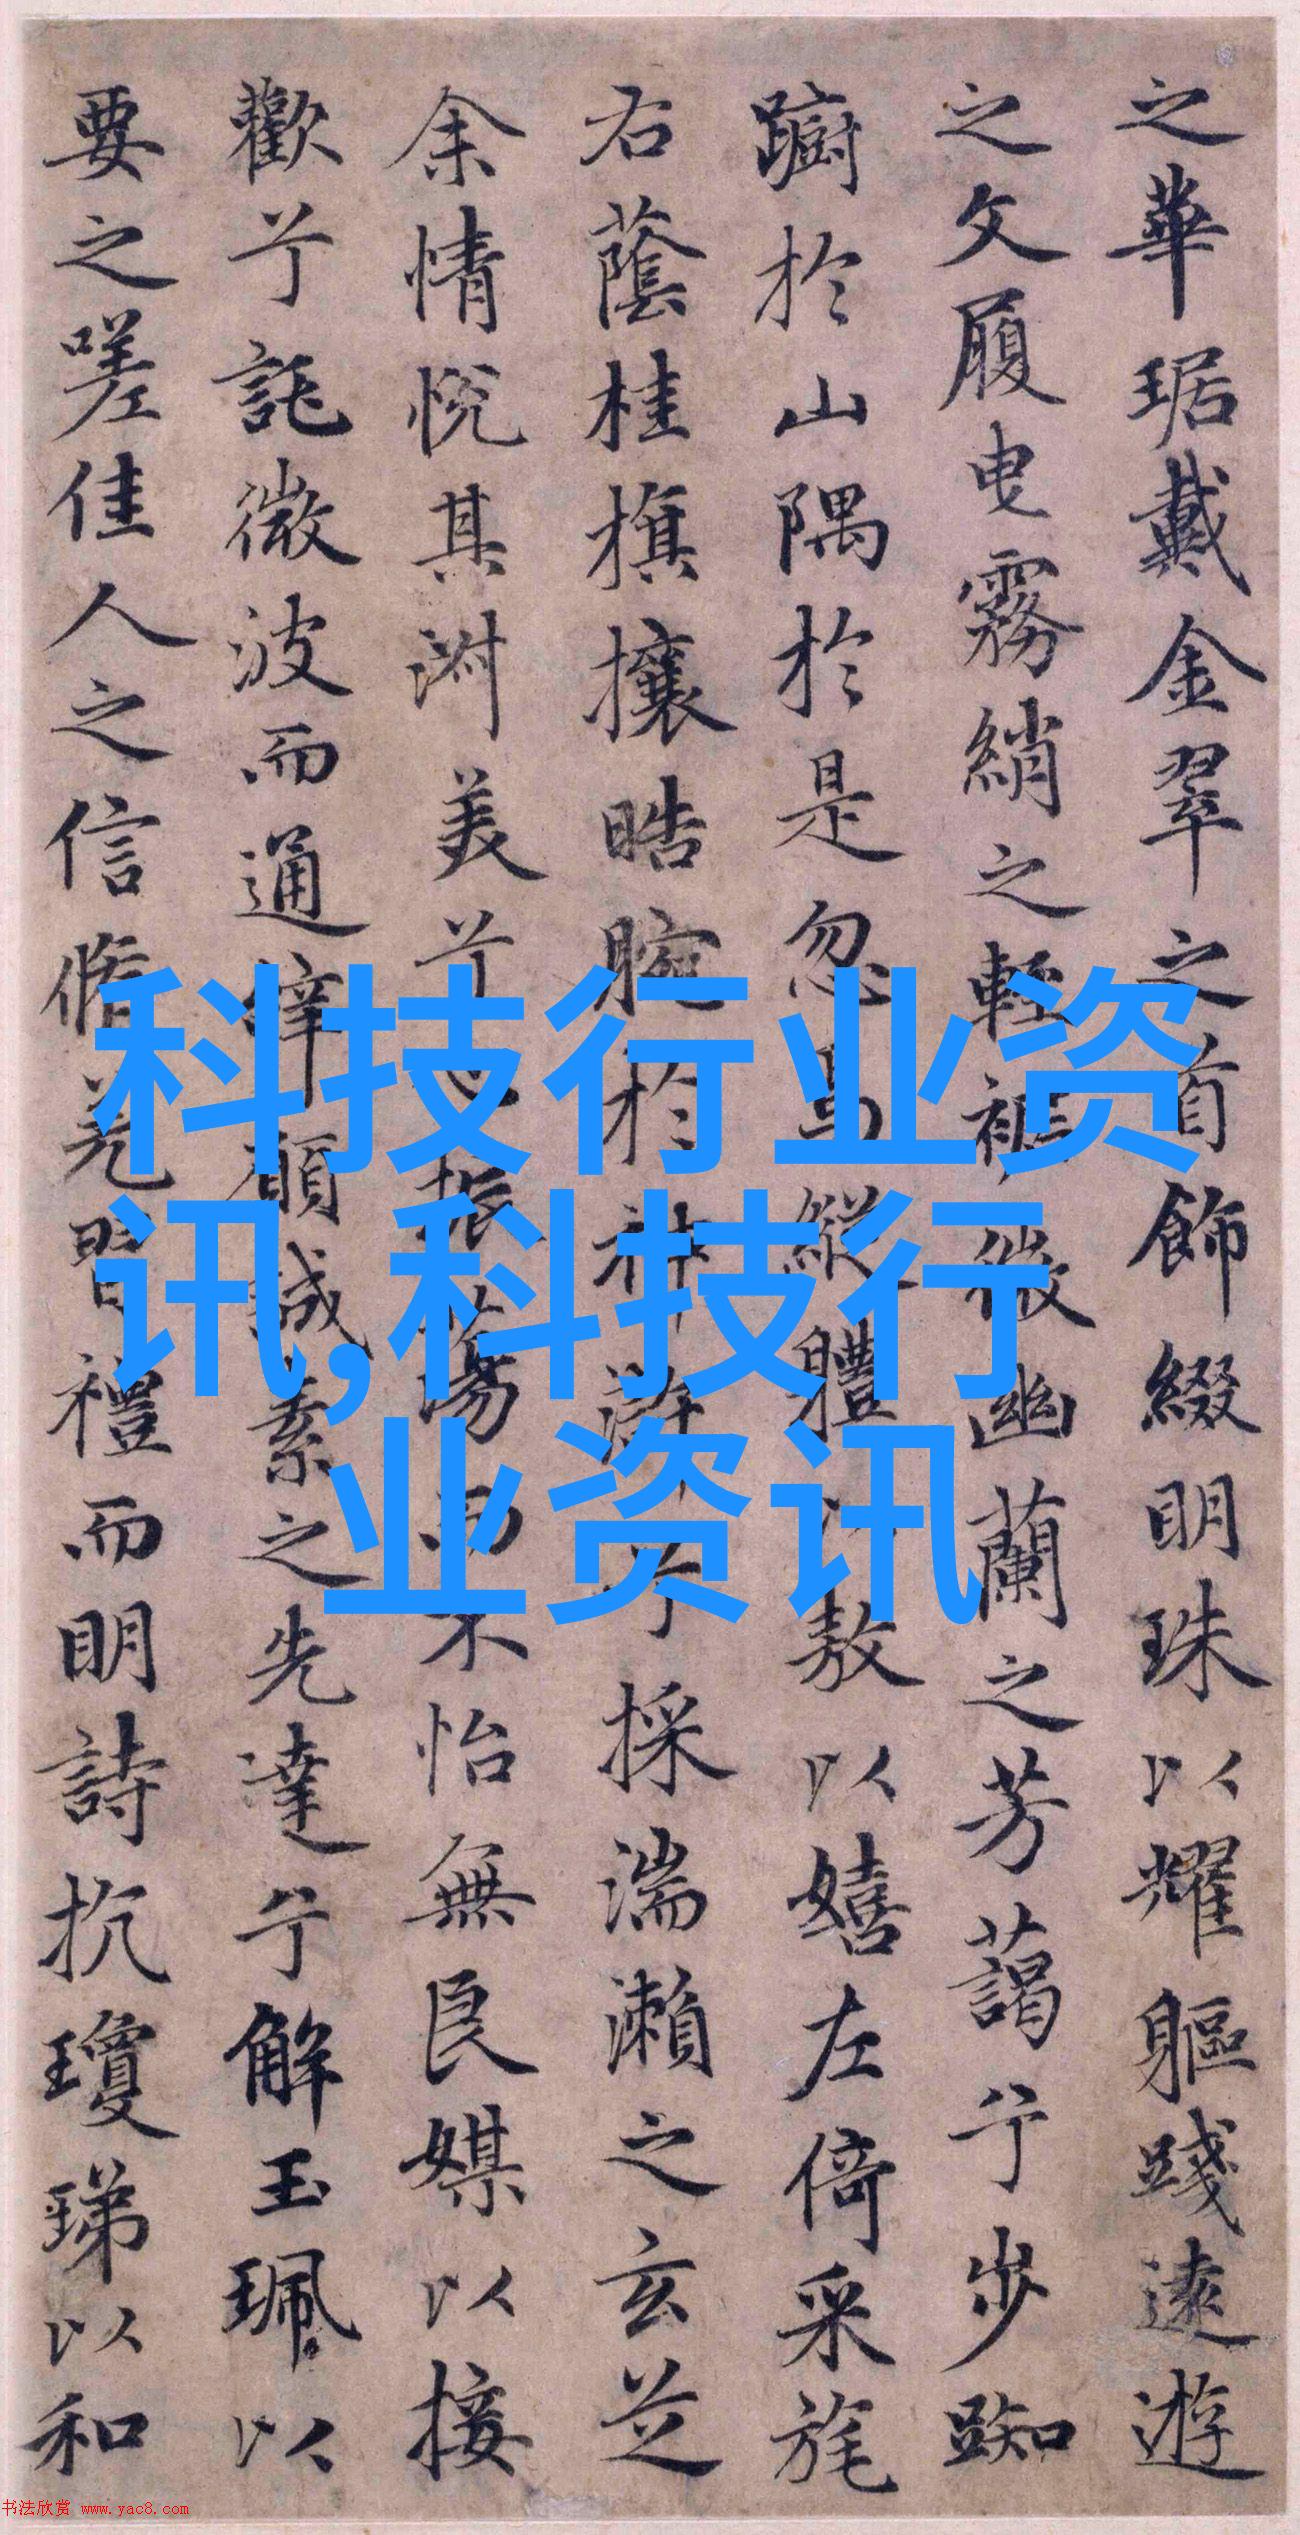 之華琚戴金翠之首飾綴明珠以耀軀踐遠遊
之文履曳霧綃之輕裾微幽蘭之芳藹兮步踟
躕於山隅於是忽焉縱體以敖以嬉左倚采旄
右蔭桂旗攘皓腕於神滸兮採湍瀨之玄芝
余情悅其淑美兮心振蕩而不怡無良媒以接
歡兮託微波而通辭願誠素之先達兮解玉珮以
要之嗟佳人之信脩羌習禮而明詩抗瓊珶以和
科技行业资
讯,科技行
业资讯
书法欣赏 www.yac8.com